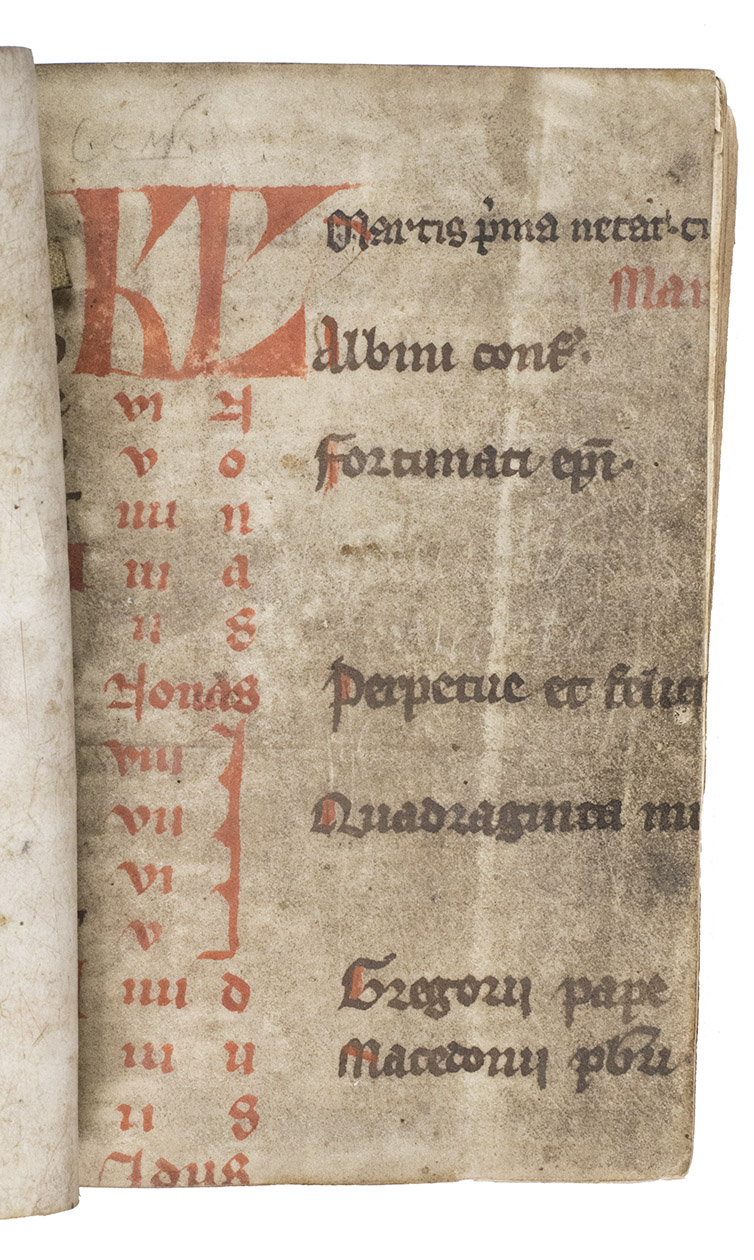 KL Martis p̄ma necat
Mar
Albini conf.
vi N
v o Fortunati ep̄i.
iiii n
iii a
ii s
Nonas Perpetue et felici
viii
vii Quadraginta mi
vi
v
iiii d Gregorii pape
iii u Macedonii pbr̄i.
ii s
Idus